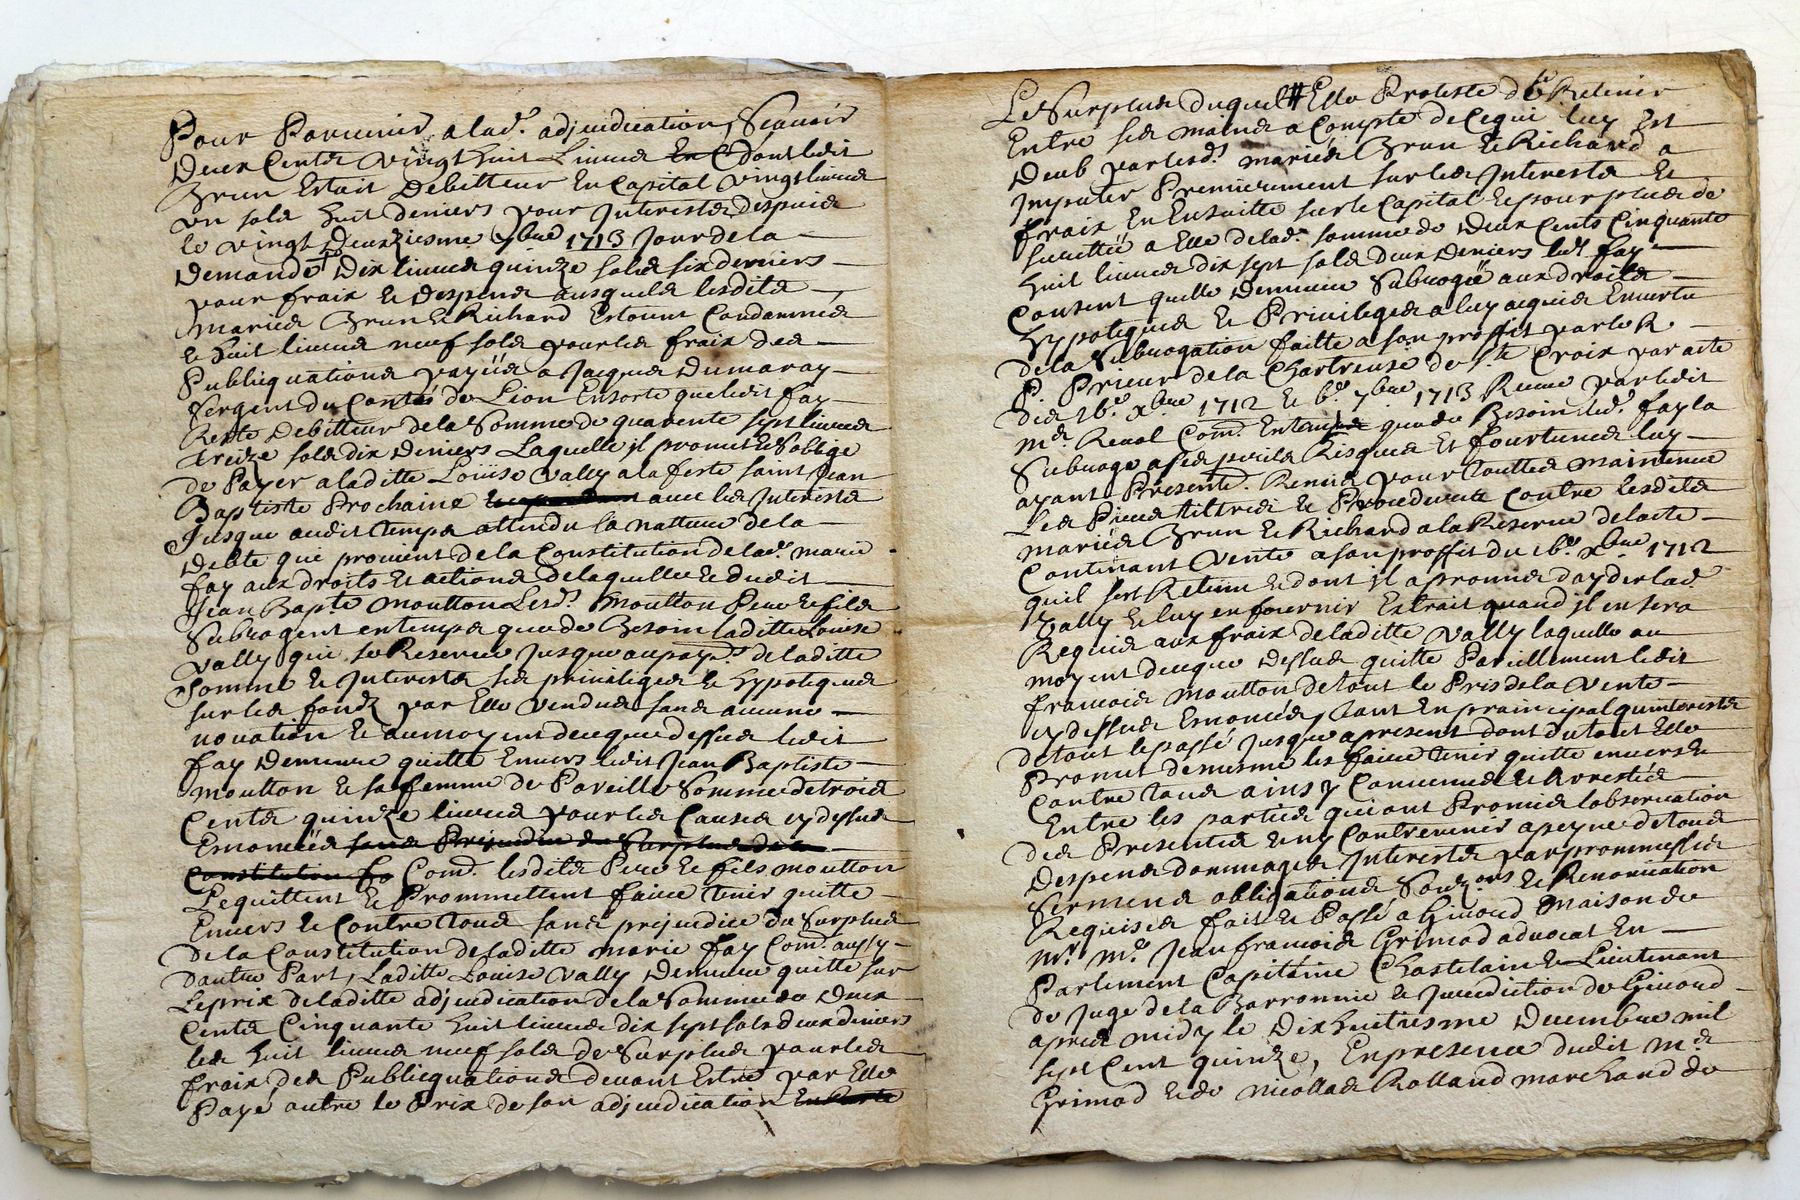 Pour Paruenir a lad.e adjuidication, Scauoir
Deux Cents vingt huit Liures En C Dont ledit
Brun Estait Debitteur En Capital vingt liures
un sols huit deniers pour Interests despuis
le vingt Deuxiesme 7bre 1713 Jour de la
Demande Dix liures quinze sols six deniers
pour fraix & Despens ausquels lesdits
Mariés Brun & Richard Estount Condamnés
& huit liures neuf sols pour les fraix des
Publiquations payües a Jacques Dumaray
sergent du Conté de Lion Ensorte que ledit fay
Reste Debitteur de la Somme de quarente sept liures
treize sols dix Deniers Laquelle jl promet & S'oblige
de Payer a laditte Loüise Vally a la feste saint Jean
Baptiste Prochaine auec les Interests
Jusque audit temps attendu la natture de la
Debte qui prouient de la Constitution de lad.e marie
fay aux droits Et actions de laquelle & dudit
Jean Bapte moutton Lesd.s Moutton Pere & fils
Subrogent en temps que de Besoin laditte Louise
Vally qui se Reserue Jusque au pay.t de laditte
Somme & Interests ses priuileges & hypoteques
sur les fondz par Elle vendus sans aucune
nouation & au moyent de ce que dessus ledit
fay Demeure quitte Enuers ledit Jean Baptiste
moutton & sa femme de Pareille Somme de trois
Cents quinze liures pour les Causes cy dessus
Enoncées sans Prejudice du Surplus de la
Constitution Com.e lesdits Pere & fils moutton
L'equittent & Promettent faire tenir quitte
Enuers & Contre tous sans prejudice du Surplus
de la Constitution de laditte marie fay Com.e aussy
dautre Part, Laditte Louise Vally Demeure quitte sur
Le prix de laditte adjuidication de la Somme de Deux
Cents Cinquante huit liures dix sept sols deux deniers
les huit liures neuf sols de Surplus pour les
fraix des Publicquations deuant Estre par Elle
Payé outre le Prix de son adjuidication
Le Surplus duquel # Elle Proteste de Retenir
Entre ses mains a Compte de Ce qui luy Est
Deub par lesd.s mariés Brun & Richard a
Imputer Premierement sur les Interests &
fraix En Ensuitte sur le Capital & pour plus de
sureté a Elle de lad.e somme de Deux Cents Cinquante
huit liures dix sept sols deux deniers led.t fay
Consent quelle Demeure Subrogée aux droits
hypoteques & Priuileges a luy acquis En uertu
de la Subrogation faitte a son proffit par le R.
P. Prieur de la Chartreuse de S.te Croix par acte
des 16.e xbre 1712 & 6.e 7bre 1713 Receu par ledit
m.e Reuol Com.e En temps que de Besoin led.t fay la
Subroge a ses perils Risques & fourtunes luy
ayant Presente.t Remis pour touttes maintenue
Les Pieces tiltres & Procedures Contre lesdits
mariés Brun & Richard a la Reserue de l'acte
Contenant Vente a son proffit du 16.e xbre 1712
quil sest Retenu & dont jl a promis d'ayder lad.e
Vally & luy en fournir Extrait quand jl en sera
Requis aux fraix de laditte Vally laquelle au
moyent de ce que Dessus quitte Pareillement ledit
francois Moutton de tout le Pris de la vente
cy dessus Enoncée, tant En principal quinterests
de tout le passé Jusque a present dont du tout Elle
Promet de mesme les faire tenir quitte enuers &
Contre tous ainsy Conuenu & Arresté
Entre les parties qui ont Promis l'obseruation
des Presentes & ny Contreuenir a peyne de tous
Despens dommages Interests par prommesses
Serments obligations & Renonciation
Requises fait & Passé a Giuord Maison de
Mr. M.e Jean francois Grimod aduocat En
Parlement Capitaine Chastelain & Lieutenant
de Juge de la Barronnie & Jurediction de Giuord
apres midy le Dix huitiesme Decembre mil
sept Cent quinze, En presence dudit M.r
Grimod & de Nicollas Rolland marchand de